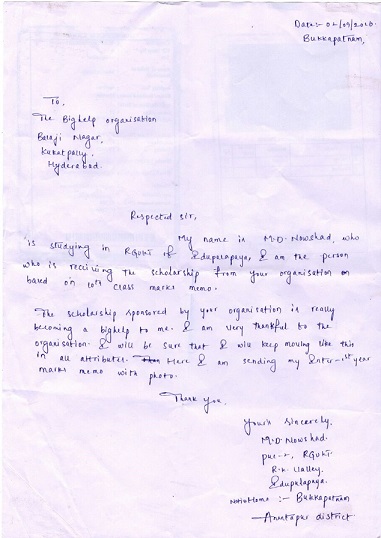 Date:- 02/09/2010.
Bukkapatnam,
To,
The Bighelp organisation
Balaji Nagar,
Kukatpally,
Hyderabad.
Respected sir,
My name is M.D. Nowshad, who
is studying in RGUKT of Idupulapaya, I am the person
who is receiving the scholarship from your organisation on
based on 10th class marks memo.
The scholarship sponsored by your organisation is really
becoming a bighelp to me. I am very thankful to the
organisation. I will be sure that I will keep moving like this
in all attributes. Here I am sending my Inter-1st year
marks memo with photo.
Thank you.
Yours sincerely,
M.D. Nowshad.
puc-2, RGUKT
R.K. Valley.
Idupulapaya.
Native Home :- Bukkapatnam
Anantapur district.